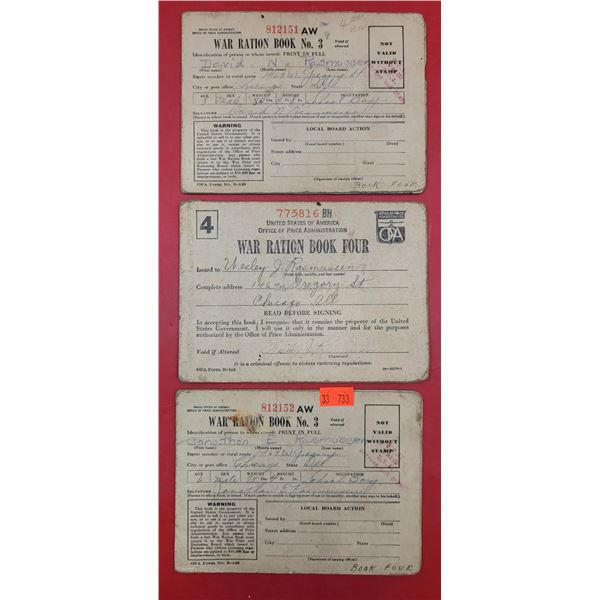 UNITED STATES OF AMERICA
OFFICE OF PRICE ADMINISTRATION
812151 AW
WAR RATION BOOK No. 3
Void if altered
NOT VALID WITHOUT STAMP
Identification of person to whom issued: PRINT IN FULL
David N. Rasmussen
(First name) (Middle name) (Last name)
Street number or rural route
Gregory St
City or post office State
AGE SEX WEIGHT HEIGHT OCCUPATION
8 Male School Boy
SIGNATURE
David N Rasmussen
WARNING
This book is the property of the United States Government. It is unlawful to sell it to any other person, or to use it or permit anyone else to use it, except to obtain rationed goods in accordance with regulations of the Office of Price Administration. Any person who finds a lost War Ration Book must return it to the War Price and Rationing Board which issued it. Persons who violate rationing regulations are subject to $10,000 fine or imprisonment, or both.
LOCAL BOARD ACTION
Issued by
(Local board number) (Date)
Street address
City State
(Signature of issuing officer)
OPA Form No. R-130
BOOK FOUR
4
773816 BH
UNITED STATES OF AMERICA
OFFICE OF PRICE ADMINISTRATION
OPA
WAR RATION BOOK FOUR
Issued to Wesley J. Rasmussen
(Print first, middle, and last names)
Complete address Gregory St
Chicago Ill
READ BEFORE SIGNING
In accepting this book, I recognize that it remains the property of the United
States Government. I will use it only in the manner and for the purposes
authorized by the Office of Price Administration.
Void if Altered
(Signature)
It is a criminal offense to violate rationing regulations.
OPA Form R-145
33 733
UNITED STATES OF AMERICA
OFFICE OF PRICE ADMINISTRATION
812152 AW
WAR RATION BOOK No. 3
Void if altered
NOT VALID WITHOUT STAMP
Identification of person to whom issued: PRINT IN FULL
Jonathon E Rasmussen
(First name) (Middle name) (Last name)
Street number or rural route
Gregory
City or post office Chicago State Ill
AGE SEX WEIGHT HEIGHT OCCUPATION
6 male School Boy
SIGNATURE
Jonathon E Rasmussen
WARNING
This book is the property of the United States Government. It is unlawful to sell it to any other person, or to use it or permit anyone else to use it, except to obtain rationed goods in accordance with regulations of the Office of Price Administration. Any person who finds a lost War Ration Book must return it to the War Price and Rationing Board which issued it. Persons who violate rationing regulations are subject to $10,000 fine or imprisonment, or both.
LOCAL BOARD ACTION
Issued by
(Local board number) (Date)
Street address
City State
(Signature of issuing officer)
OPA Form No. R-130
BOOK FOUR